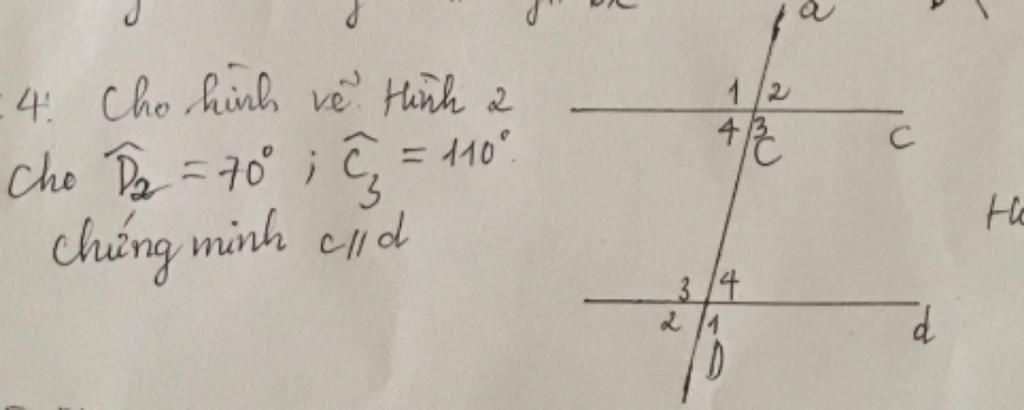 4: Cho hình vẽ Hình 2
Cho D̂₂ = 70° ; Ĉ₃ = 110°.
chứng minh c//d
a
1 2
4 3
C c
3 4
2 1
D d